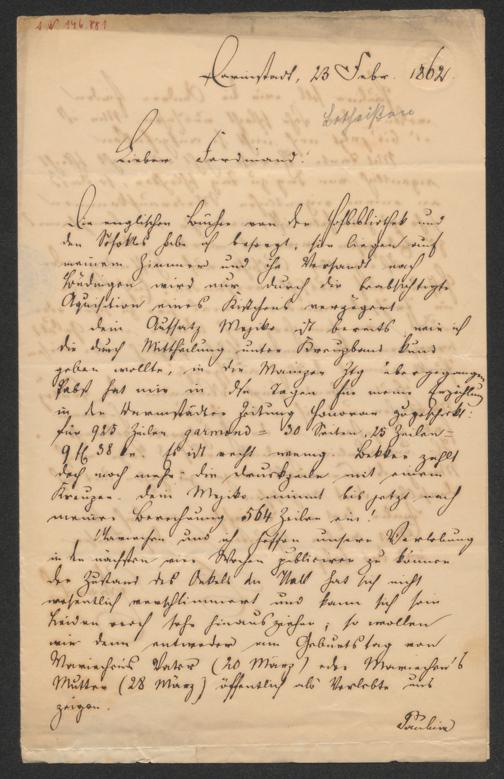 I.N. 146.881
Darmstadt, 23 Febr. 1862.
Lotheißen
Lieber Ferdinand!
Die englischen Bücher von der Hofbibliothek und
den habe ich besorgt, sie liegen auf
meinem Zimmer und ihr Versandt nach
Büdingen wird nur durch die beabsichtigte
Aquisition eines Kistchens verzögert.
Dein Aufsatz Mexiko ist bereits, wie ich
dir durch Mittheilung unter Kreuzband kund
geben wollte, in die Mainzer Ztg übergegangen
Pabst hat mir in dsn Tagen für meine Erzählung
in der Darmstädter Zeitung Honorar zugeschickt:
für 925 Zeilen garmond = 30 Seiten, 25 Zeilen =
9 fl 38 kr. Es ist recht wenig. Bekker zahlt
doch noch mehr: die Druckzeile mit einem
Kreuzer. Dein Mexiko nimmt bis jetzt nach
meiner Berechnung 564 Zeilen ein!
Mariechen und ich hoffen unsere Verlobung
in den nächsten vier Wochen publiciren zu können
der Zustand des Onkels hat sich nicht
wesentlich verschlimmert und kann sich sein
Leiden noch sehr hinausziehen; so wollen
wir denn entweder am Geburtstag von
Mariechens Vater (20 März) oder Mariechen's
Mutter (28 März) öffentlich als Verlobte uns
zeigen.